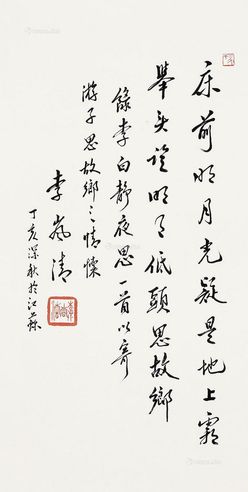 床前明月光疑是地上霜
舉头望明月低頭思故鄉
錄李白靜夜思一首以寄
游子思故鄉之情懷
李岚清
丁亥深秋於江蘇